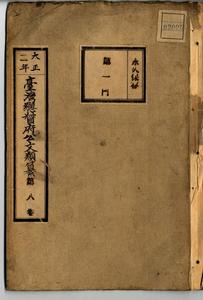 永久保存
第一門
大正二年
臺灣總督府公文類纂 第八卷